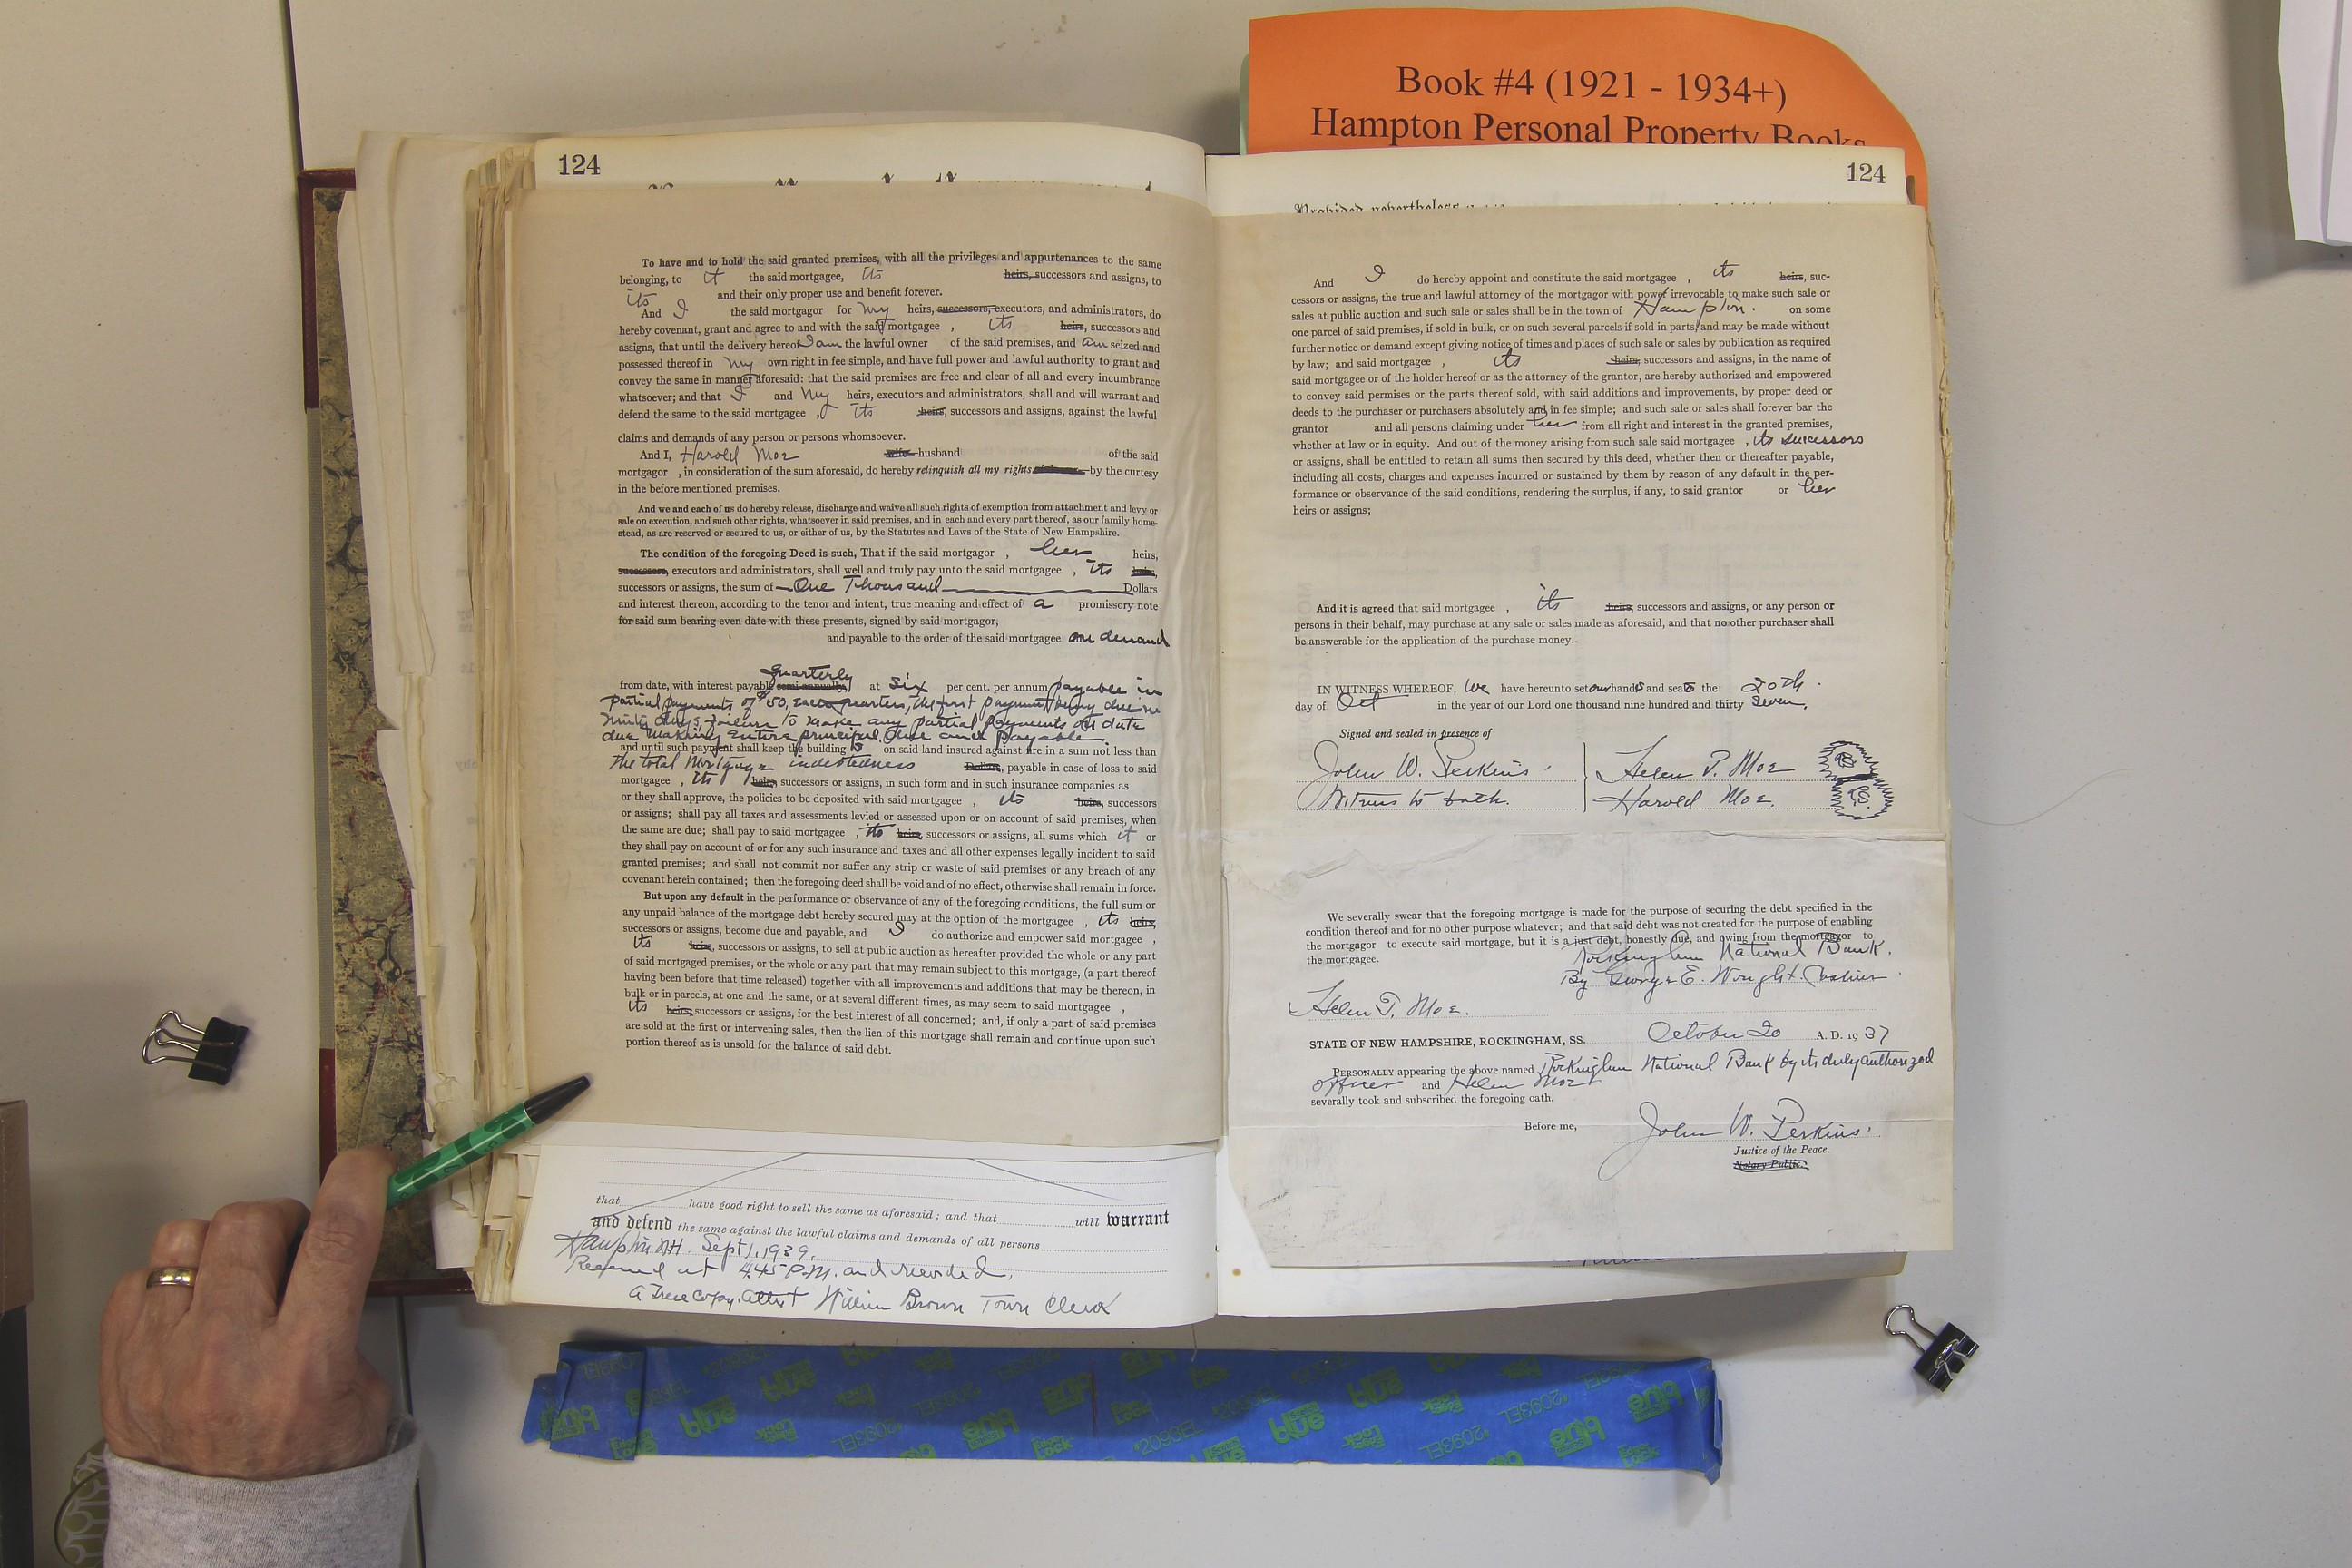 Book #4 (1921 - 1934+)
Hampton Personal Property Books
124
To have and to hold the said granted premises, with all the privileges and appurtenances to the same
belonging, to it the said mortgagee, its heirs, successors and assigns, to
its and their only proper use and benefit forever.
And I the said mortgagor for my heirs, successors, executors, and administrators, do
hereby covenant, grant and agree to and with the said mortgagee , its heirs, successors and
assigns, that until the delivery hereof I am the lawful owner of the said premises, and am seized and
possessed thereof in my own right in fee simple, and have full power and lawful authority to grant and
convey the same in manner aforesaid: that the said premises are free and clear of all and every incumbrance
whatsoever; and that I and my heirs, executors and administrators, shall and will warrant and
defend the same to the said mortgagee , its heirs, successors and assigns, against the lawful
claims and demands of any person or persons whomsoever.
And I, Harold Moe wife husband of the said
mortgagor , in consideration of the sum aforesaid, do hereby relinquish all my rights by the curtesy
in the before mentioned premises.
And we and each of us do hereby release, discharge and waive all such rights of exemption from attachment and levy or
sale on execution, and such other rights, whatsoever in said premises, and in each and every part thereof, as our family home-
stead, as are reserved or secured to us, or either of us, by the Statutes and Laws of the State of New Hampshire.
The condition of the foregoing Deed is such, That if the said mortgagor , her heirs,
successors, executors and administrators, shall well and truly pay unto the said mortgagee , its heirs,
successors or assigns, the sum of One Thousand Dollars
and interest thereon, according to the tenor and intent, true meaning and effect of a promissory note
for said sum bearing even date with these presents, signed by said mortgagor;
and payable to the order of the said mortgagee on demand
Quarterly
from date, with interest payable semi-annually at six per cent. per annum payable in
partial payments of $50, each quarters, the first payment being due in
ninty days, failure to make any partial payments on date
due making entire principal due and payable.
and until such payment shall keep the building s on said land insured against fire in a sum not less than
the total Mortgage indebtedness Dollars, payable in case of loss to said
mortgagee , its heirs, successors or assigns, in such form and in such insurance companies as
or they shall approve, the policies to be deposited with said mortgagee , its heirs, successors
or assigns; shall pay all taxes and assessments levied or assessed upon or on account of said premises, when
the same are due; shall pay to said mortgagee , its heirs, successors or assigns, all sums which it or
they shall pay on account of or for any such insurance and taxes and all other expenses legally incident to said
granted premises; and shall not commit nor suffer any strip or waste of said premises or any breach of any
covenant herein contained; then the foregoing deed shall be void and of no effect, otherwise shall remain in force.
But upon any default in the performance or observance of any of the foregoing conditions, the full sum or
any unpaid balance of the mortgage debt hereby secured may at the option of the mortgagee , its heirs,
successors or assigns, become due and payable, and I do authorize and empower said mortgagee ,
its heirs, successors or assigns, to sell at public auction as hereafter provided the whole or any part
of said mortgaged premises, or the whole or any part that may remain subject to this mortgage, (a part thereof
having been before that time released) together with all improvements and additions that may be thereon, in
bulk or in parcels, at one and the same, or at several different times, as may seem to said mortgagee ,
its heirs, successors or assigns, for the best interest of all concerned; and, if only a part of said premises
are sold at the first or intervening sales, then the lien of this mortgage shall remain and continue upon such
portion thereof as is unsold for the balance of said debt.
that have good right to sell the same as aforesaid; and that will warrant
and defend the same against the lawful claims and demands of all persons
Hampton NH. Sept 1, 1939.
Received at 4.45 P.M. and recorded,
A True copy. Attest William Brown Town Clerk
124
Provided nevertheless
And I do hereby appoint and constitute the said mortgagee , its heirs, suc-
cessors or assigns, the true and lawful attorney of the mortgagor with power irrevocable to make such sale or
sales at public auction and such sale or sales shall be in the town of Hampton. on some
one parcel of said premises, if sold in bulk, or on such several parcels if sold in parts, and may be made without
further notice or demand except giving notice of times and places of such sale or sales by publication as required
by law; and said mortgagee , its heirs, successors and assigns, in the name of
said mortgagee or of the holder hereof or as the attorney of the grantor, are hereby authorized and empowered
to convey said permises or the parts thereof sold, with said additions and improvements, by proper deed or
deeds to the purchaser or purchasers absolutely and in fee simple; and such sale or sales shall forever bar the
grantor and all persons claiming under her from all right and interest in the granted premises,
whether at law or in equity. And out of the money arising from such sale said mortgagee , its successors
or assigns, shall be entitled to retain all sums then secured by this deed, whether then or thereafter payable,
including all costs, charges and expenses incurred or sustained by them by reason of any default in the per-
formance or observance of the said conditions, rendering the surplus, if any, to said grantor or her
heirs or assigns;
And it is agreed that said mortgagee , its heirs, successors and assigns, or any person or
persons in their behalf, may purchase at any sale or sales made as aforesaid, and that no other purchaser shall
be answerable for the application of the purchase money.
IN WITNESS WHEREOF, We have hereunto set our hands and seals the 20th.
day of Oct in the year of our Lord one thousand nine hundred and thirty Seven,
Signed and sealed in presence of
John W. Perkins Helen P. Moe
Witness to both. Harold Moe.
We severally swear that the foregoing mortgage is made for the purpose of securing the debt specified in the
condition thereof and for no other purpose whatever; and that said debt was not created for the purpose of enabling
the mortgagor to execute said mortgage, but it is a just debt, honestly due, and owing from the mortgagor to
the mortgagee. Rockingham National Bank.
By George E. Wought. Cashier
Helen T. Moe.
STATE OF NEW HAMPSHIRE, ROCKINGHAM, SS. October 20 A. D. 1937
PERSONALLY appearing the above named Rockingham National Bank by its duly authorized
officer and Helen Moe
severally took and subscribed the foregoing oath.
Before me, John W. Perkins.
Justice of the Peace.
Notary Public.